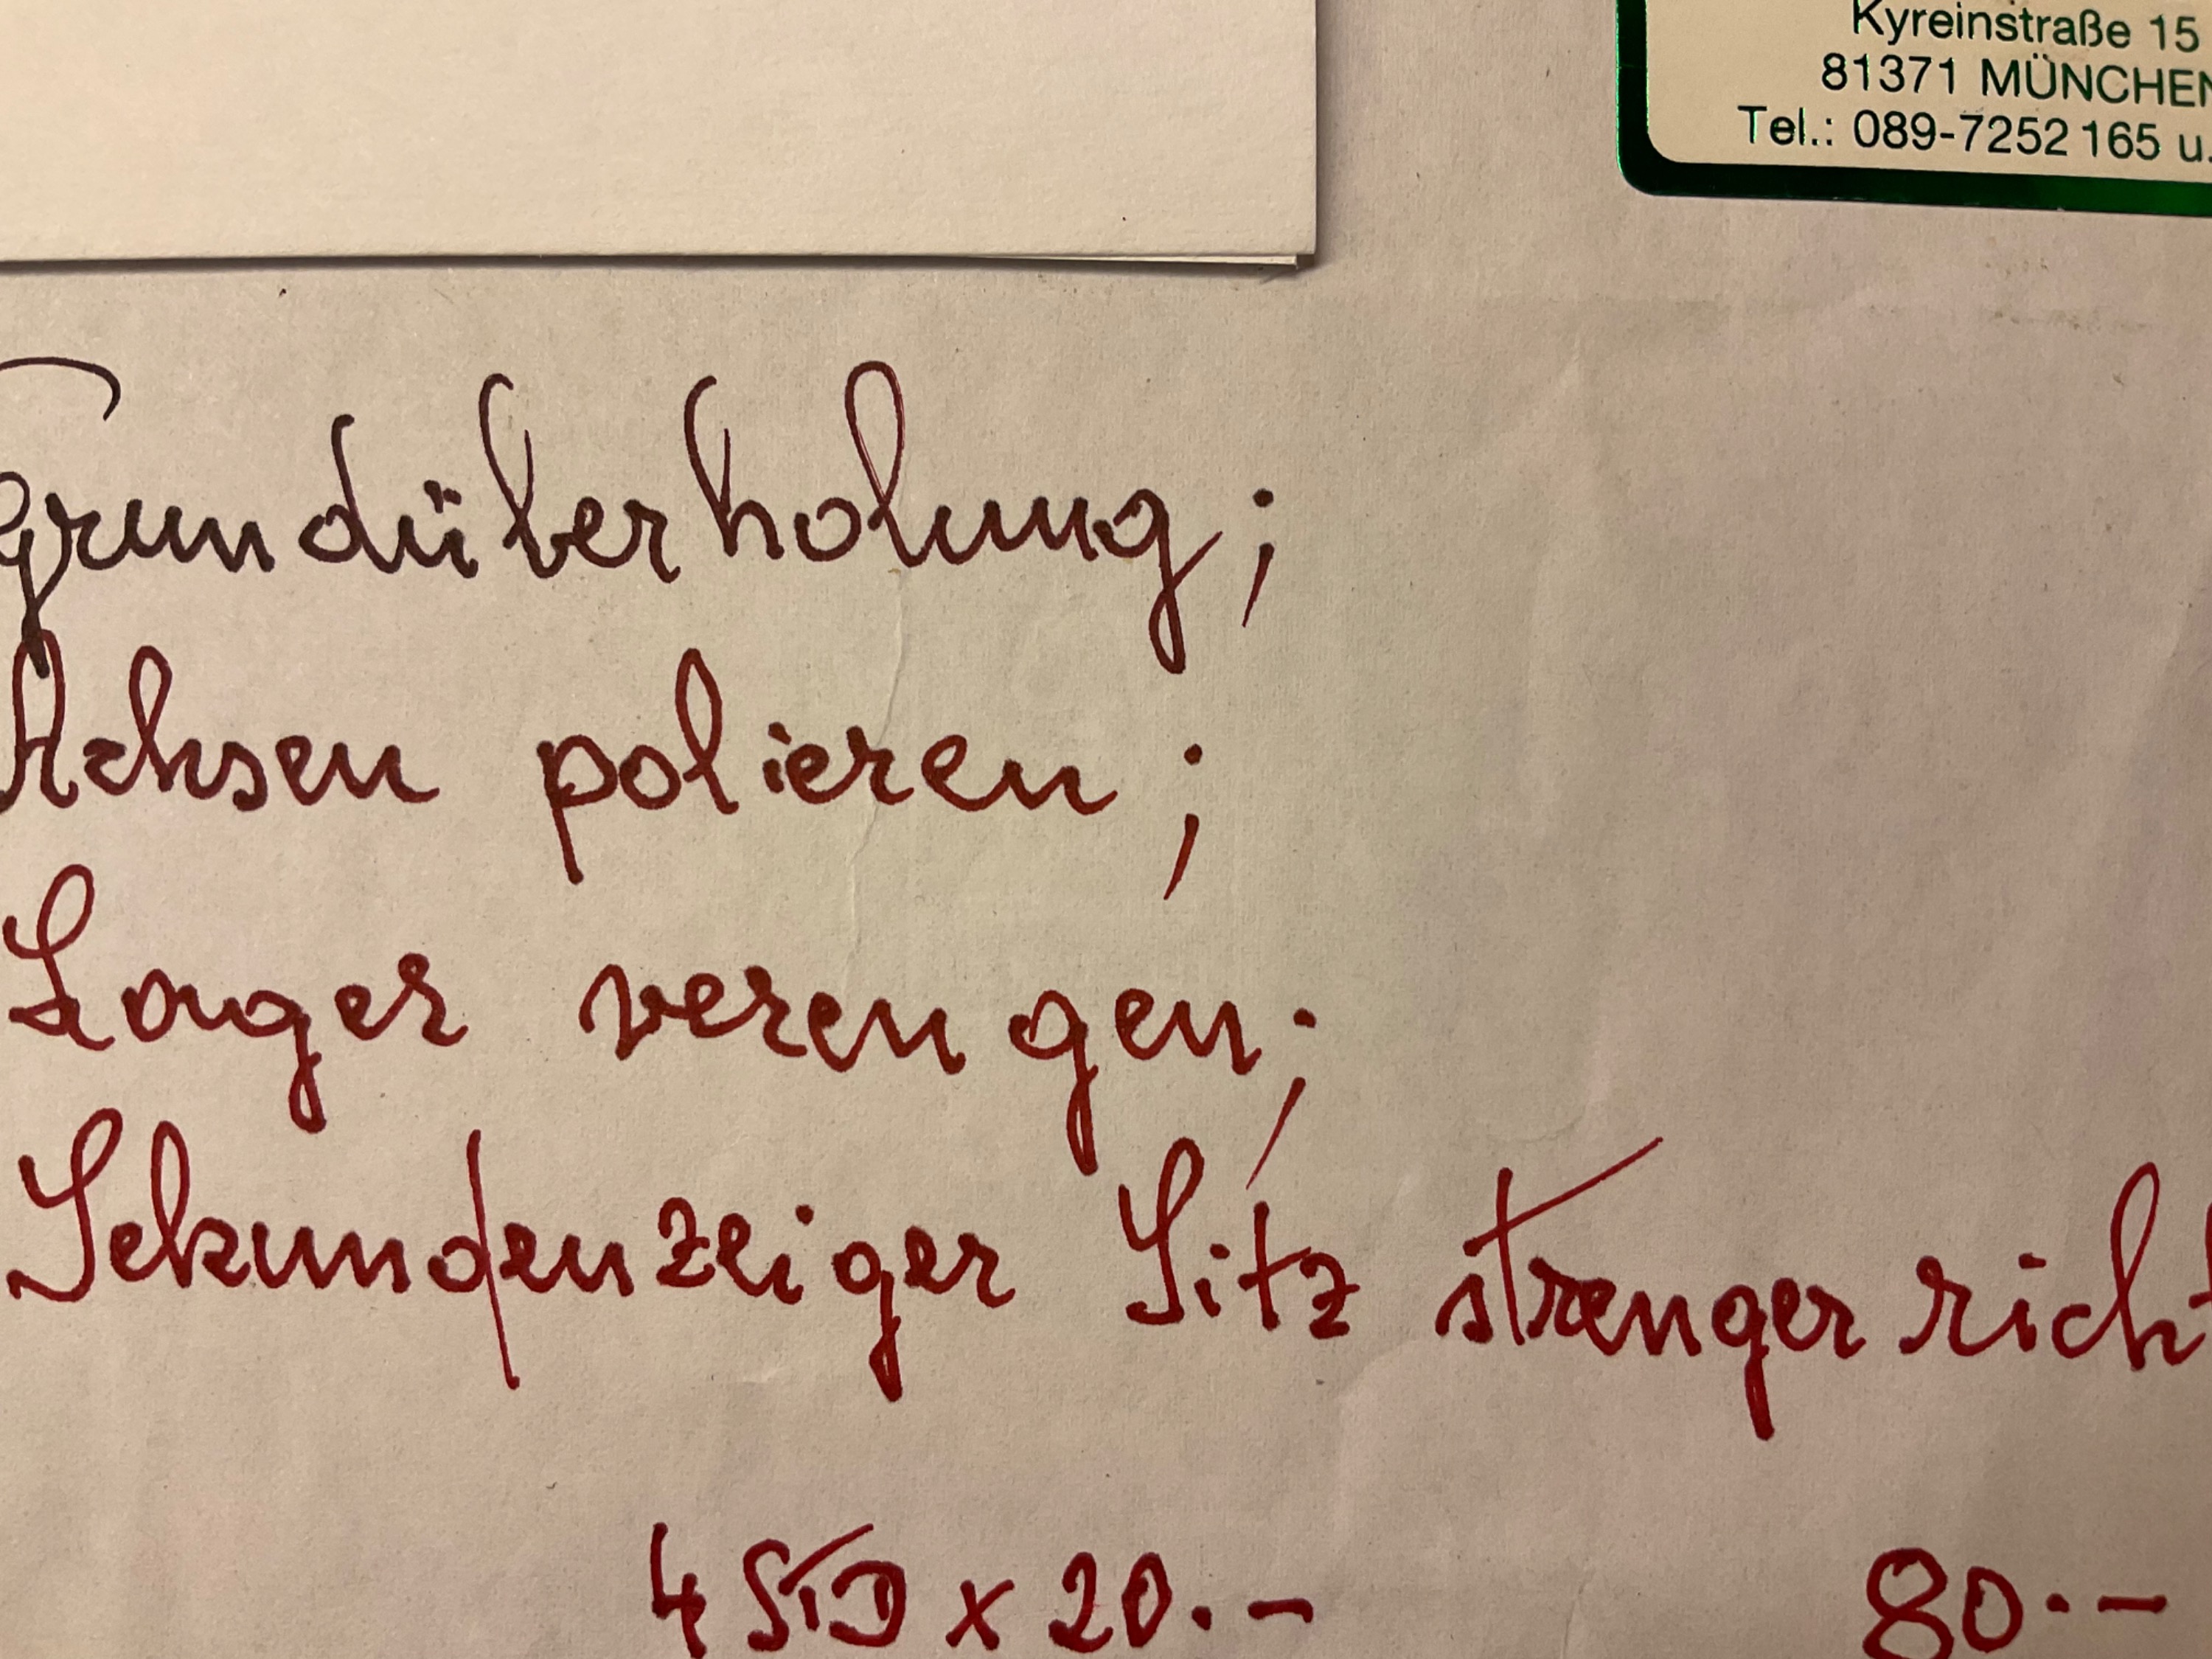 Kyreinstraße 15
81371 MÜNCHEN
Tel.: 089-7252 165 u.
Grundüberholung;
Achsen polieren;
Lager verengen;
Sekundenzeiger Sitz strenger richt
4 STD x 20.- 80.-